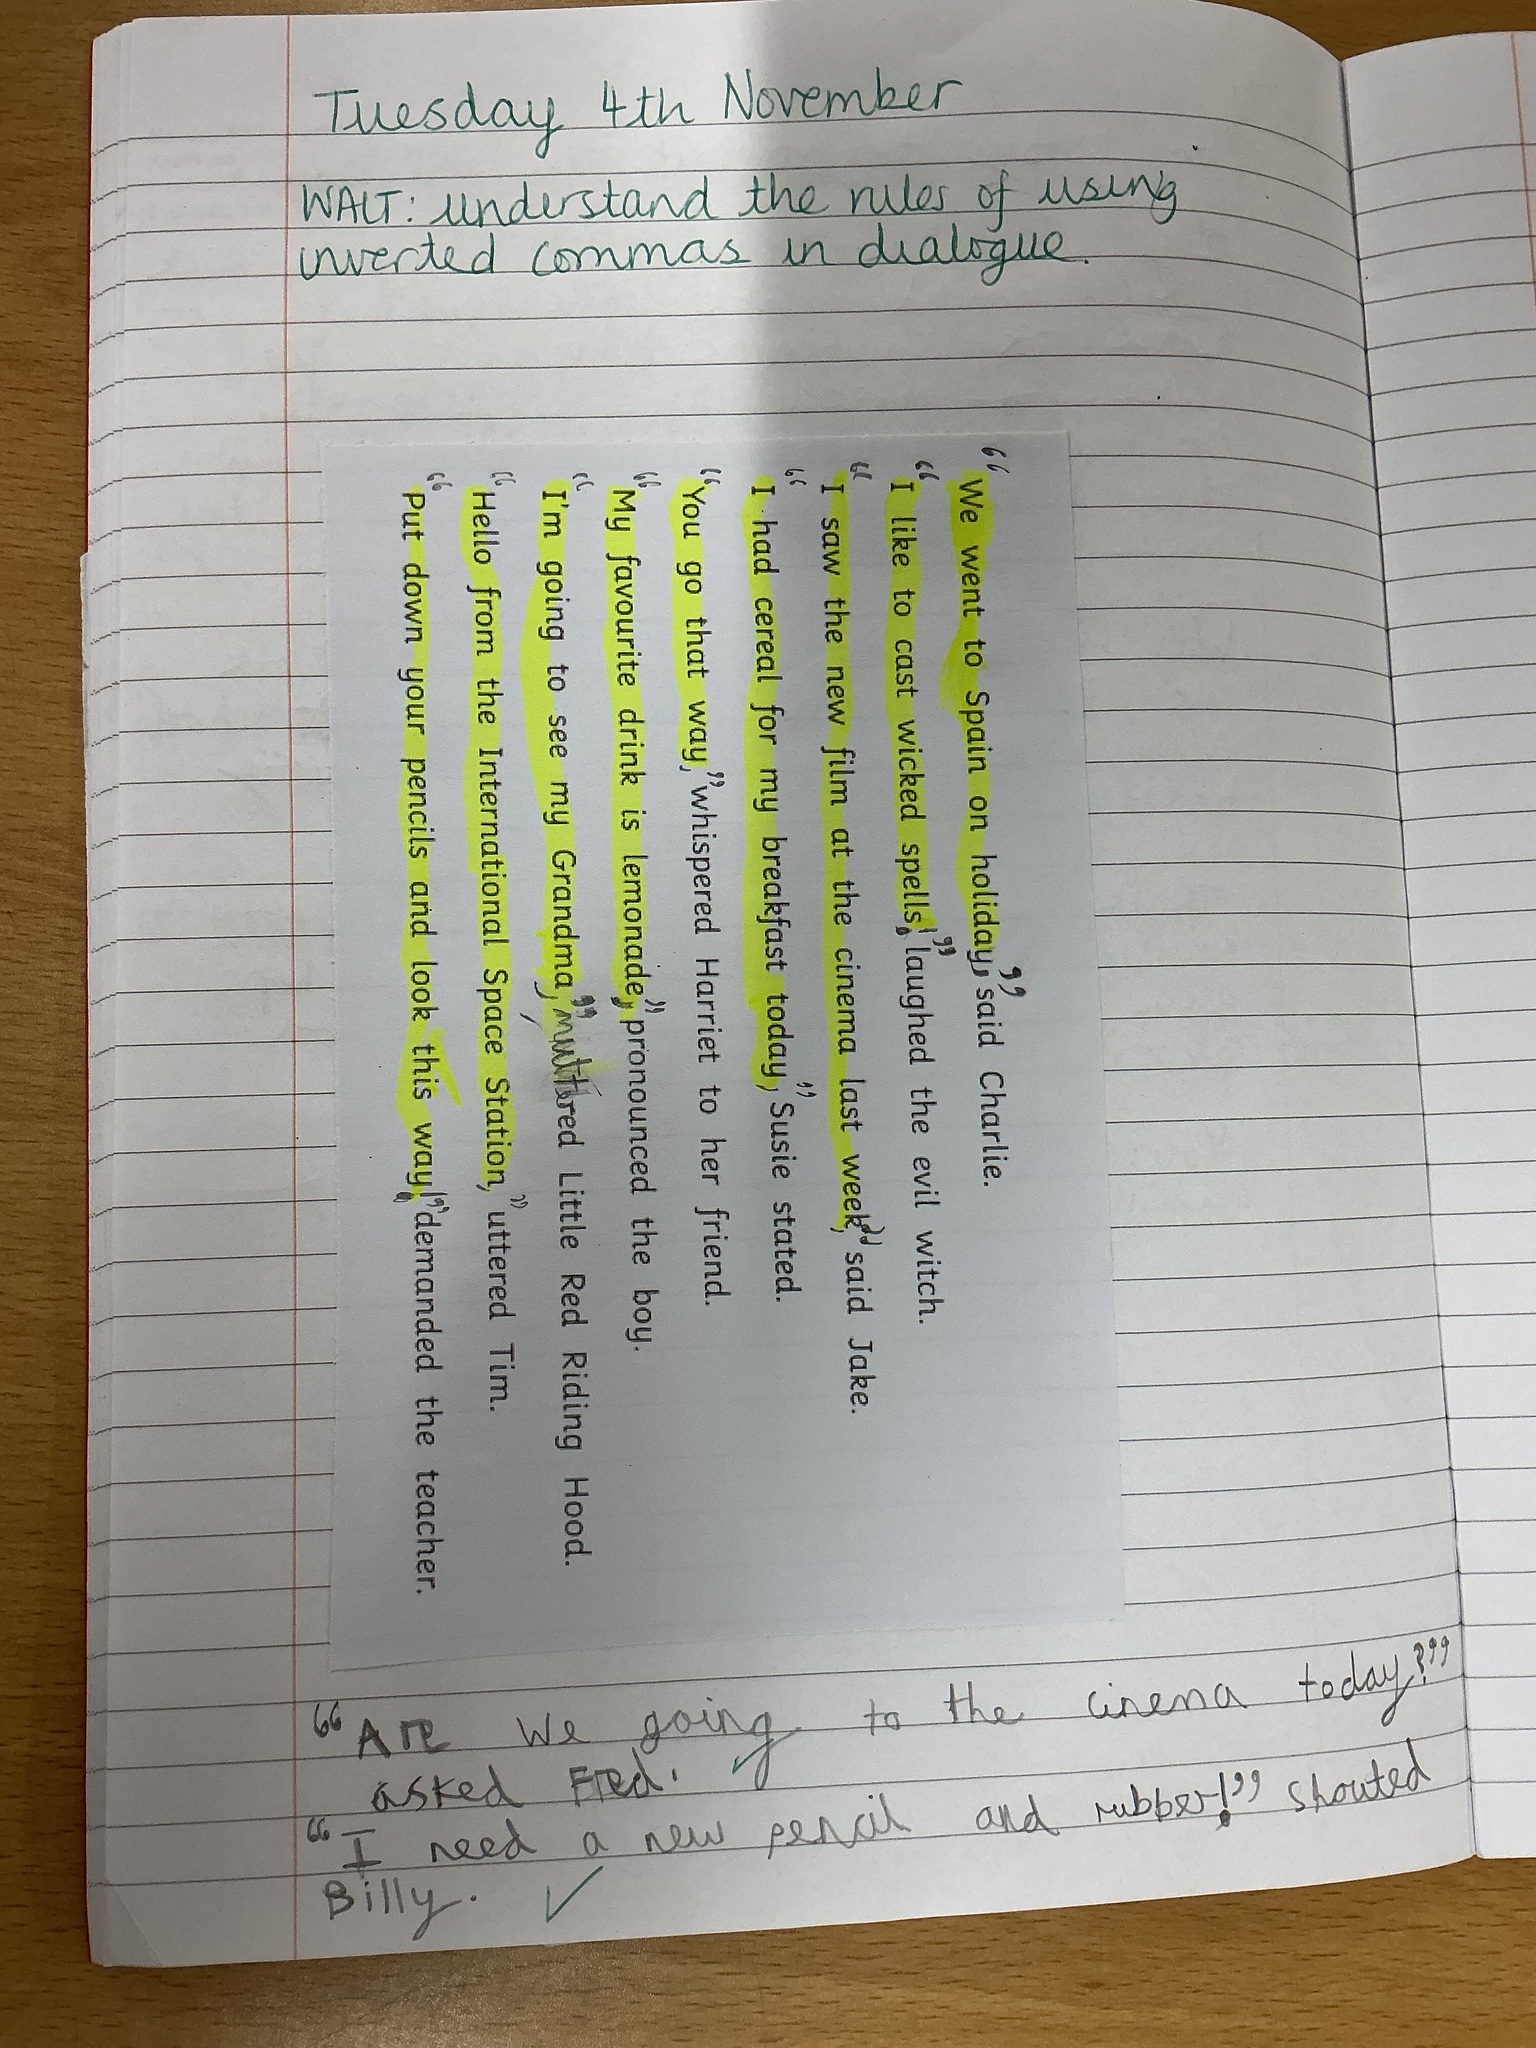 Tuesday 4th November
WALT: understand the rules of using
inverted commas in dialogue.
“We went to Spain on holiday,” said Charlie.
“I like to cast wicked spells!” laughed the evil witch.
“I saw the new film at the cinema last week,” said Jake.
“I had cereal for my breakfast today,” Susie stated.
“You go that way,” whispered Harriet to her friend.
“My favourite drink is lemonade,” pronounced the boy.
“I'm going to see my Grandma,” muttered Little Red Riding Hood.
“Hello from the International Space Station,” uttered Tim.
“Put down your pencils and look this way!” demanded the teacher.
“Are we going to the cinema today?”
asked Fred.
“I need a new pencil and rubber!” shouted
Billy.